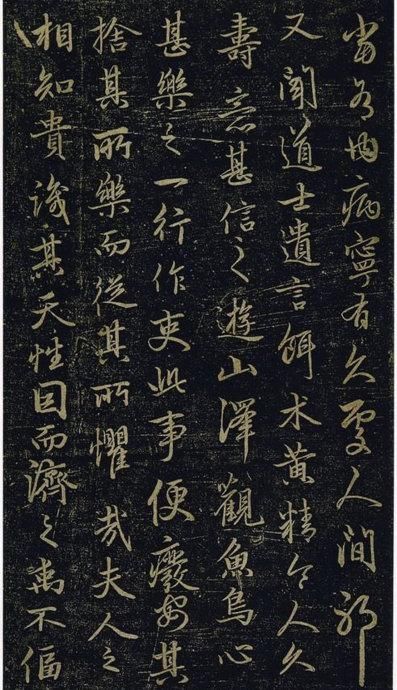 當有內病寧有久處人間邪
又聞道士遺言餌朮黃精令人久
壽意甚信之遊山澤觀魚鳥心
甚樂之一行作吏此事便癈安其
捨其所樂而從其所懼哉夫人之
相知貴識其天性因而濟之禹不偪